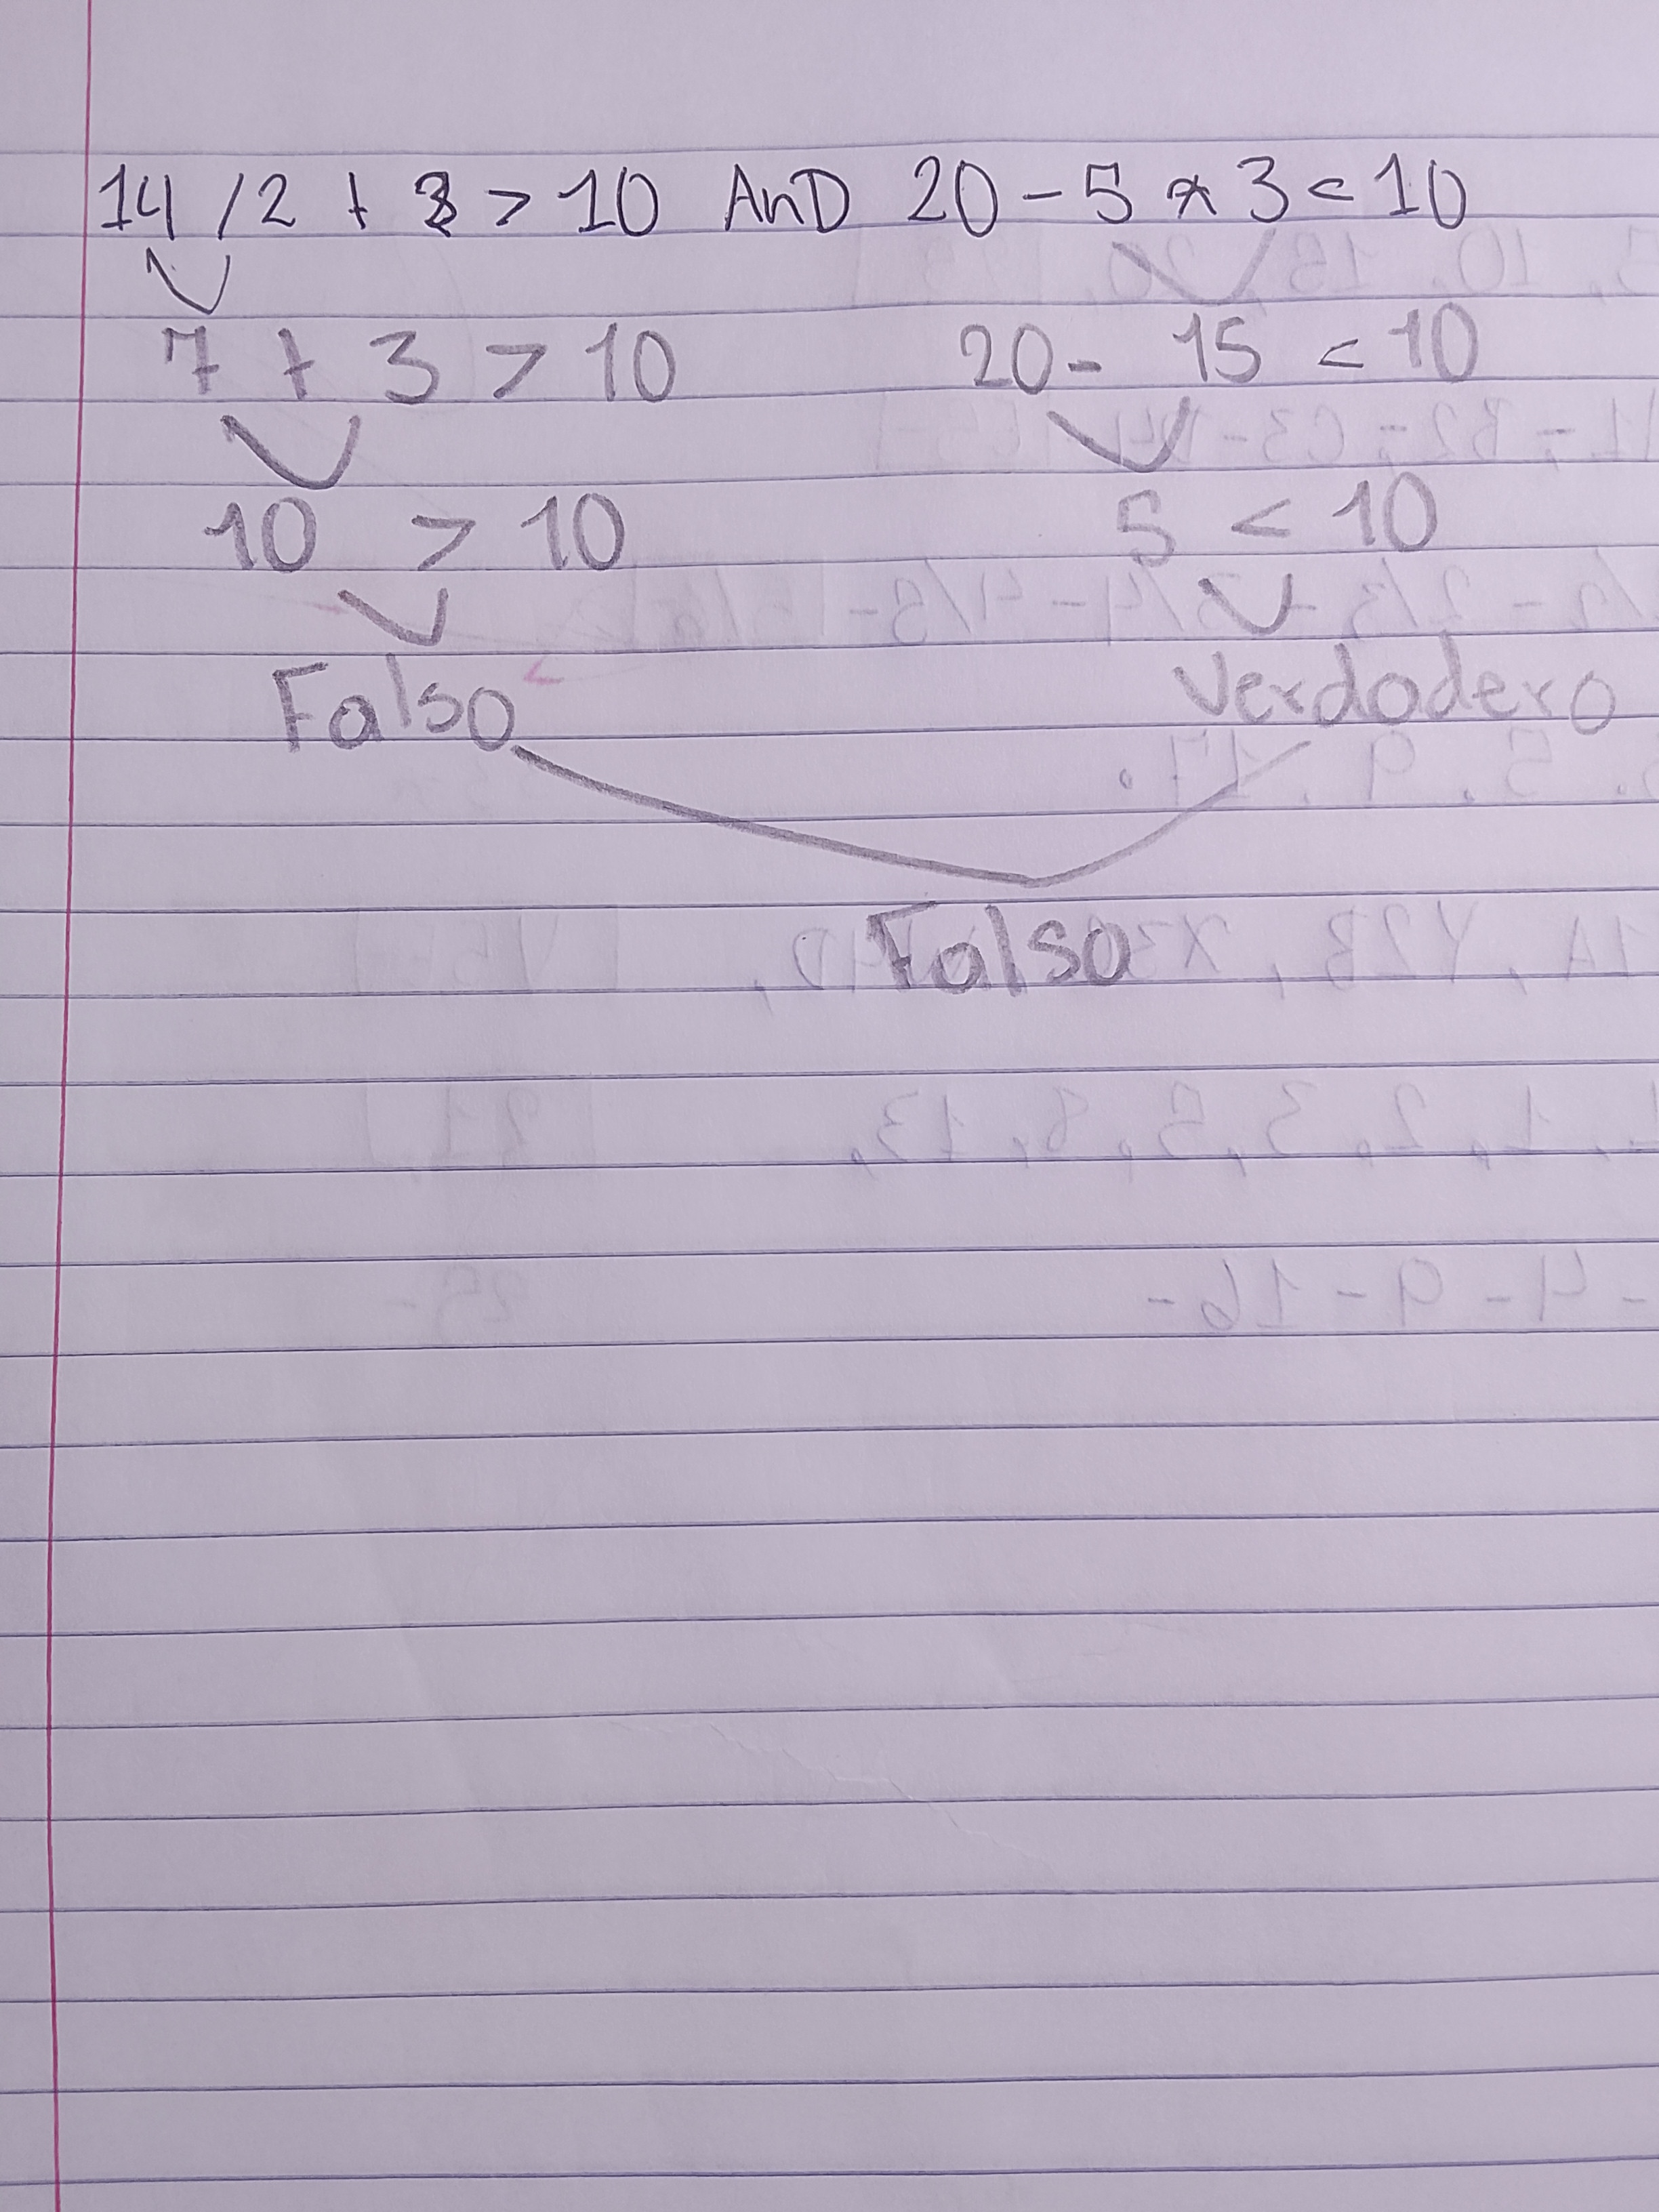 14 / 2 + 3 > 10 AnD 20 - 5 * 3 < 10
7 + 3 > 10 20 - 15 < 10
10 > 10 5 < 10
Falso Verdadero
Falso